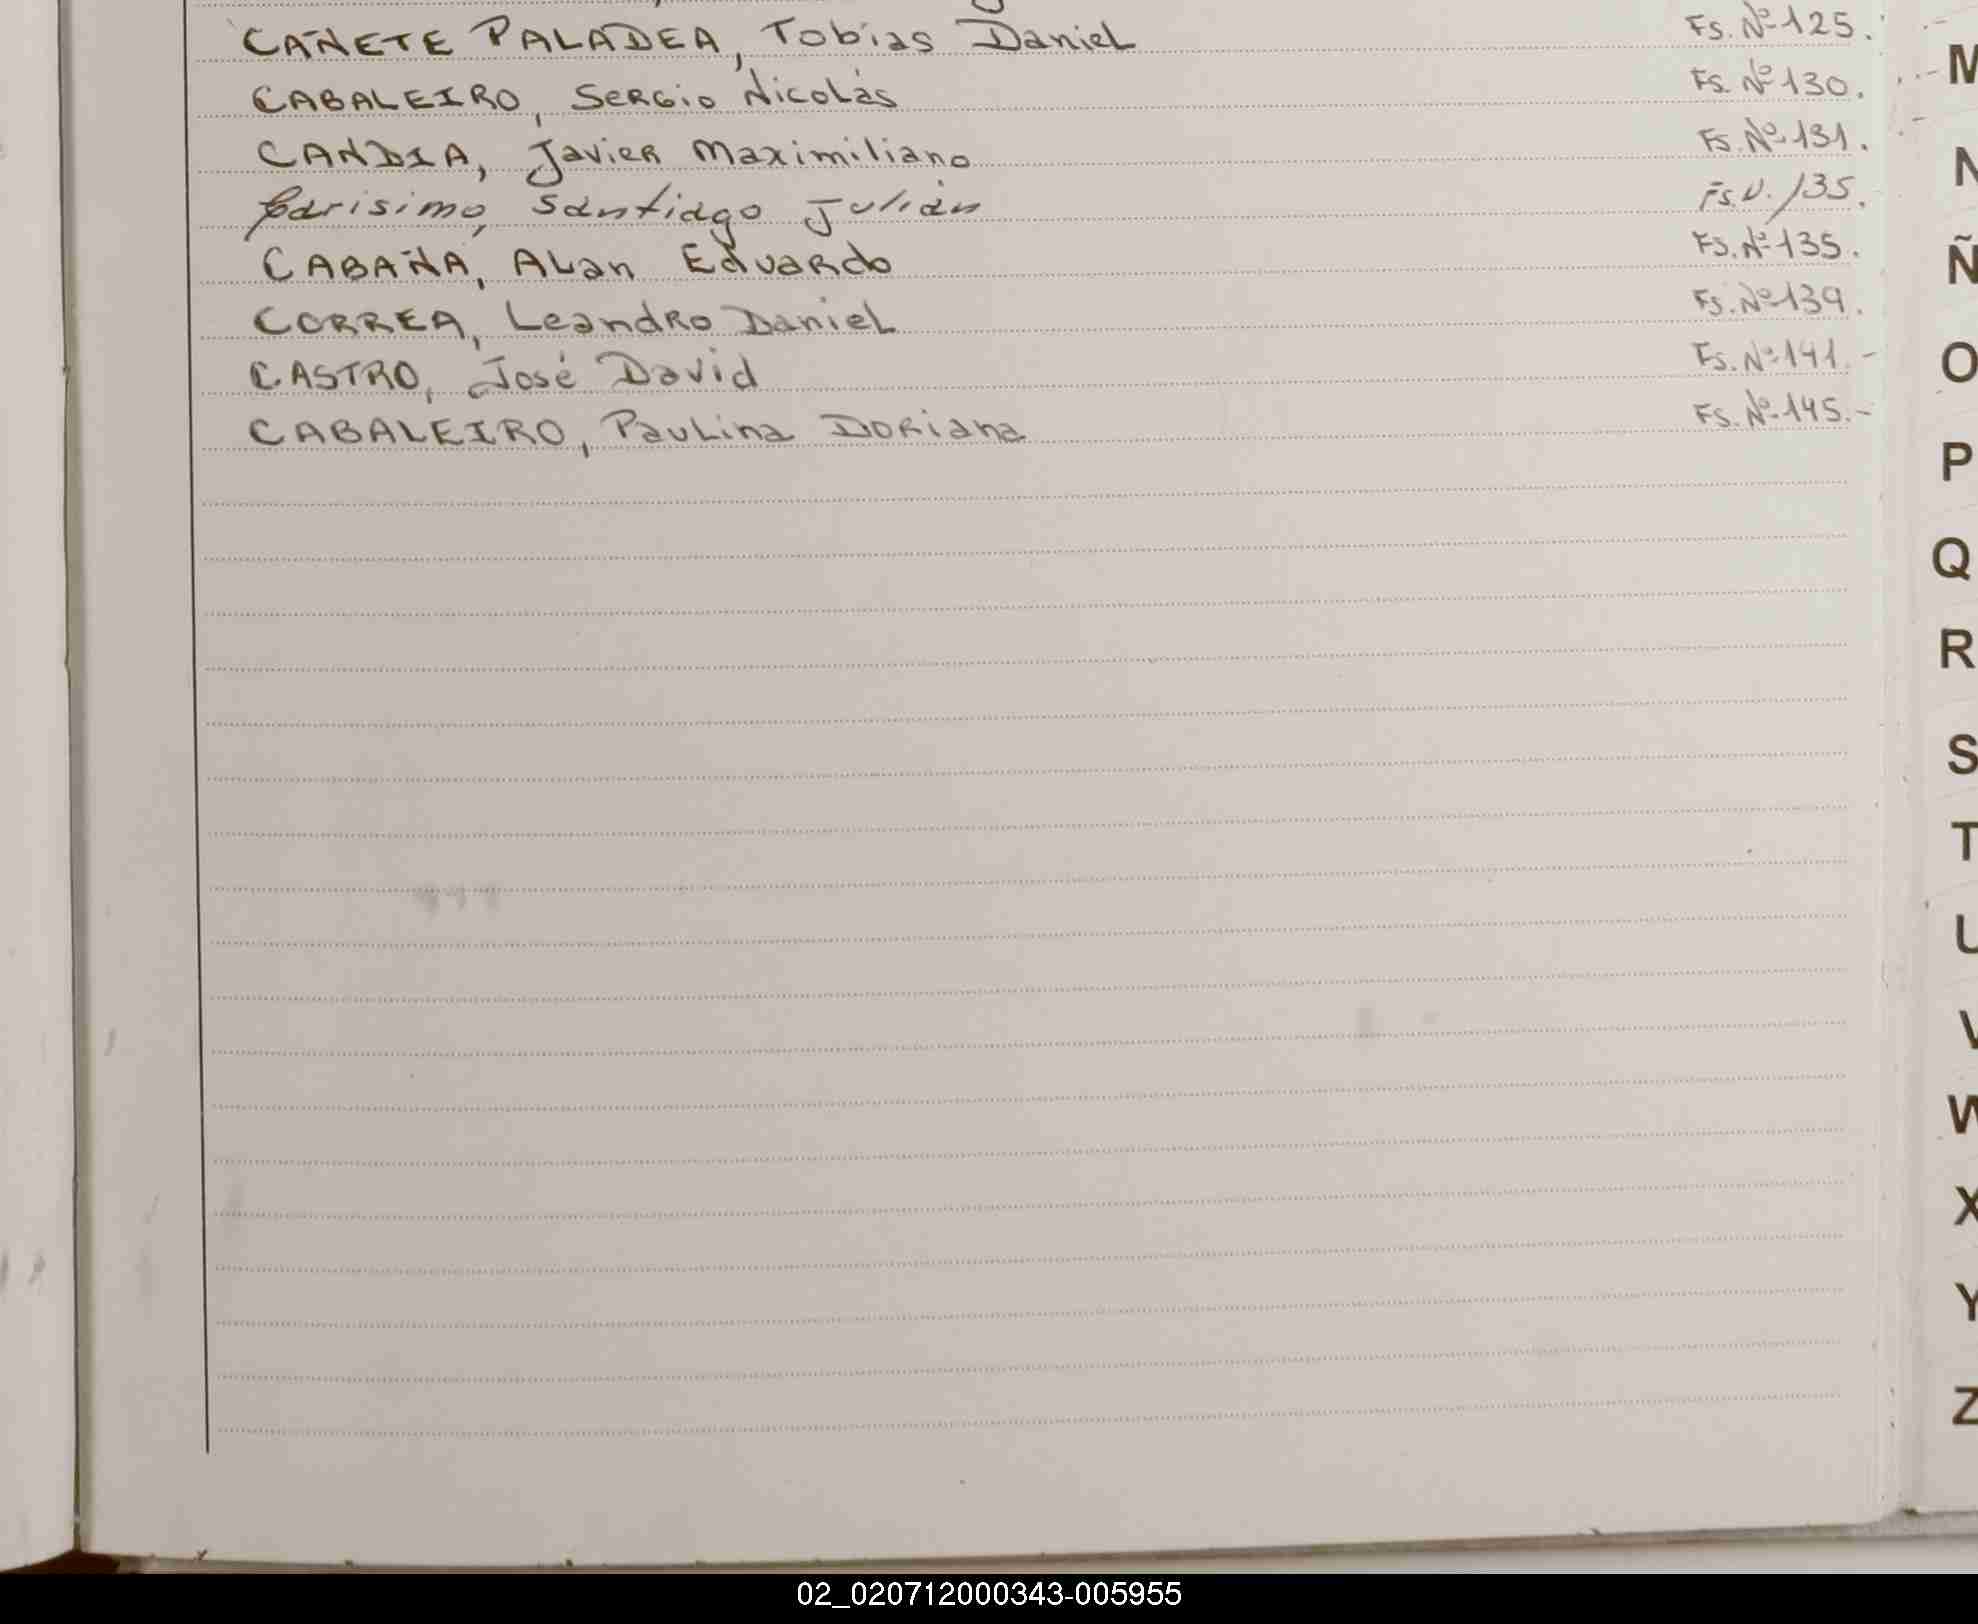 CAÑETE PALADEA, Tobias Daniel Fs. Nº 125.
CABALEIRO, Sergio Nicolás Fs. Nº 130.
CANDIA, Javier Maximiliano Fs. Nº 131.
Carisimo, Santiago Julián Fs. N. 135.
CABAÑA, Alan Eduardo Fs. Nº 135.
CORREA, Leandro Daniel Fs. Nº 139.
CASTRO, José David Fs. Nº 141.-
CABALEIRO, Paulina Doriana Fs. Nº 145.-
M
N
Ñ
O
P
Q
R
S
T
U
V
W
X
Y
Z
02_020712000343-005955